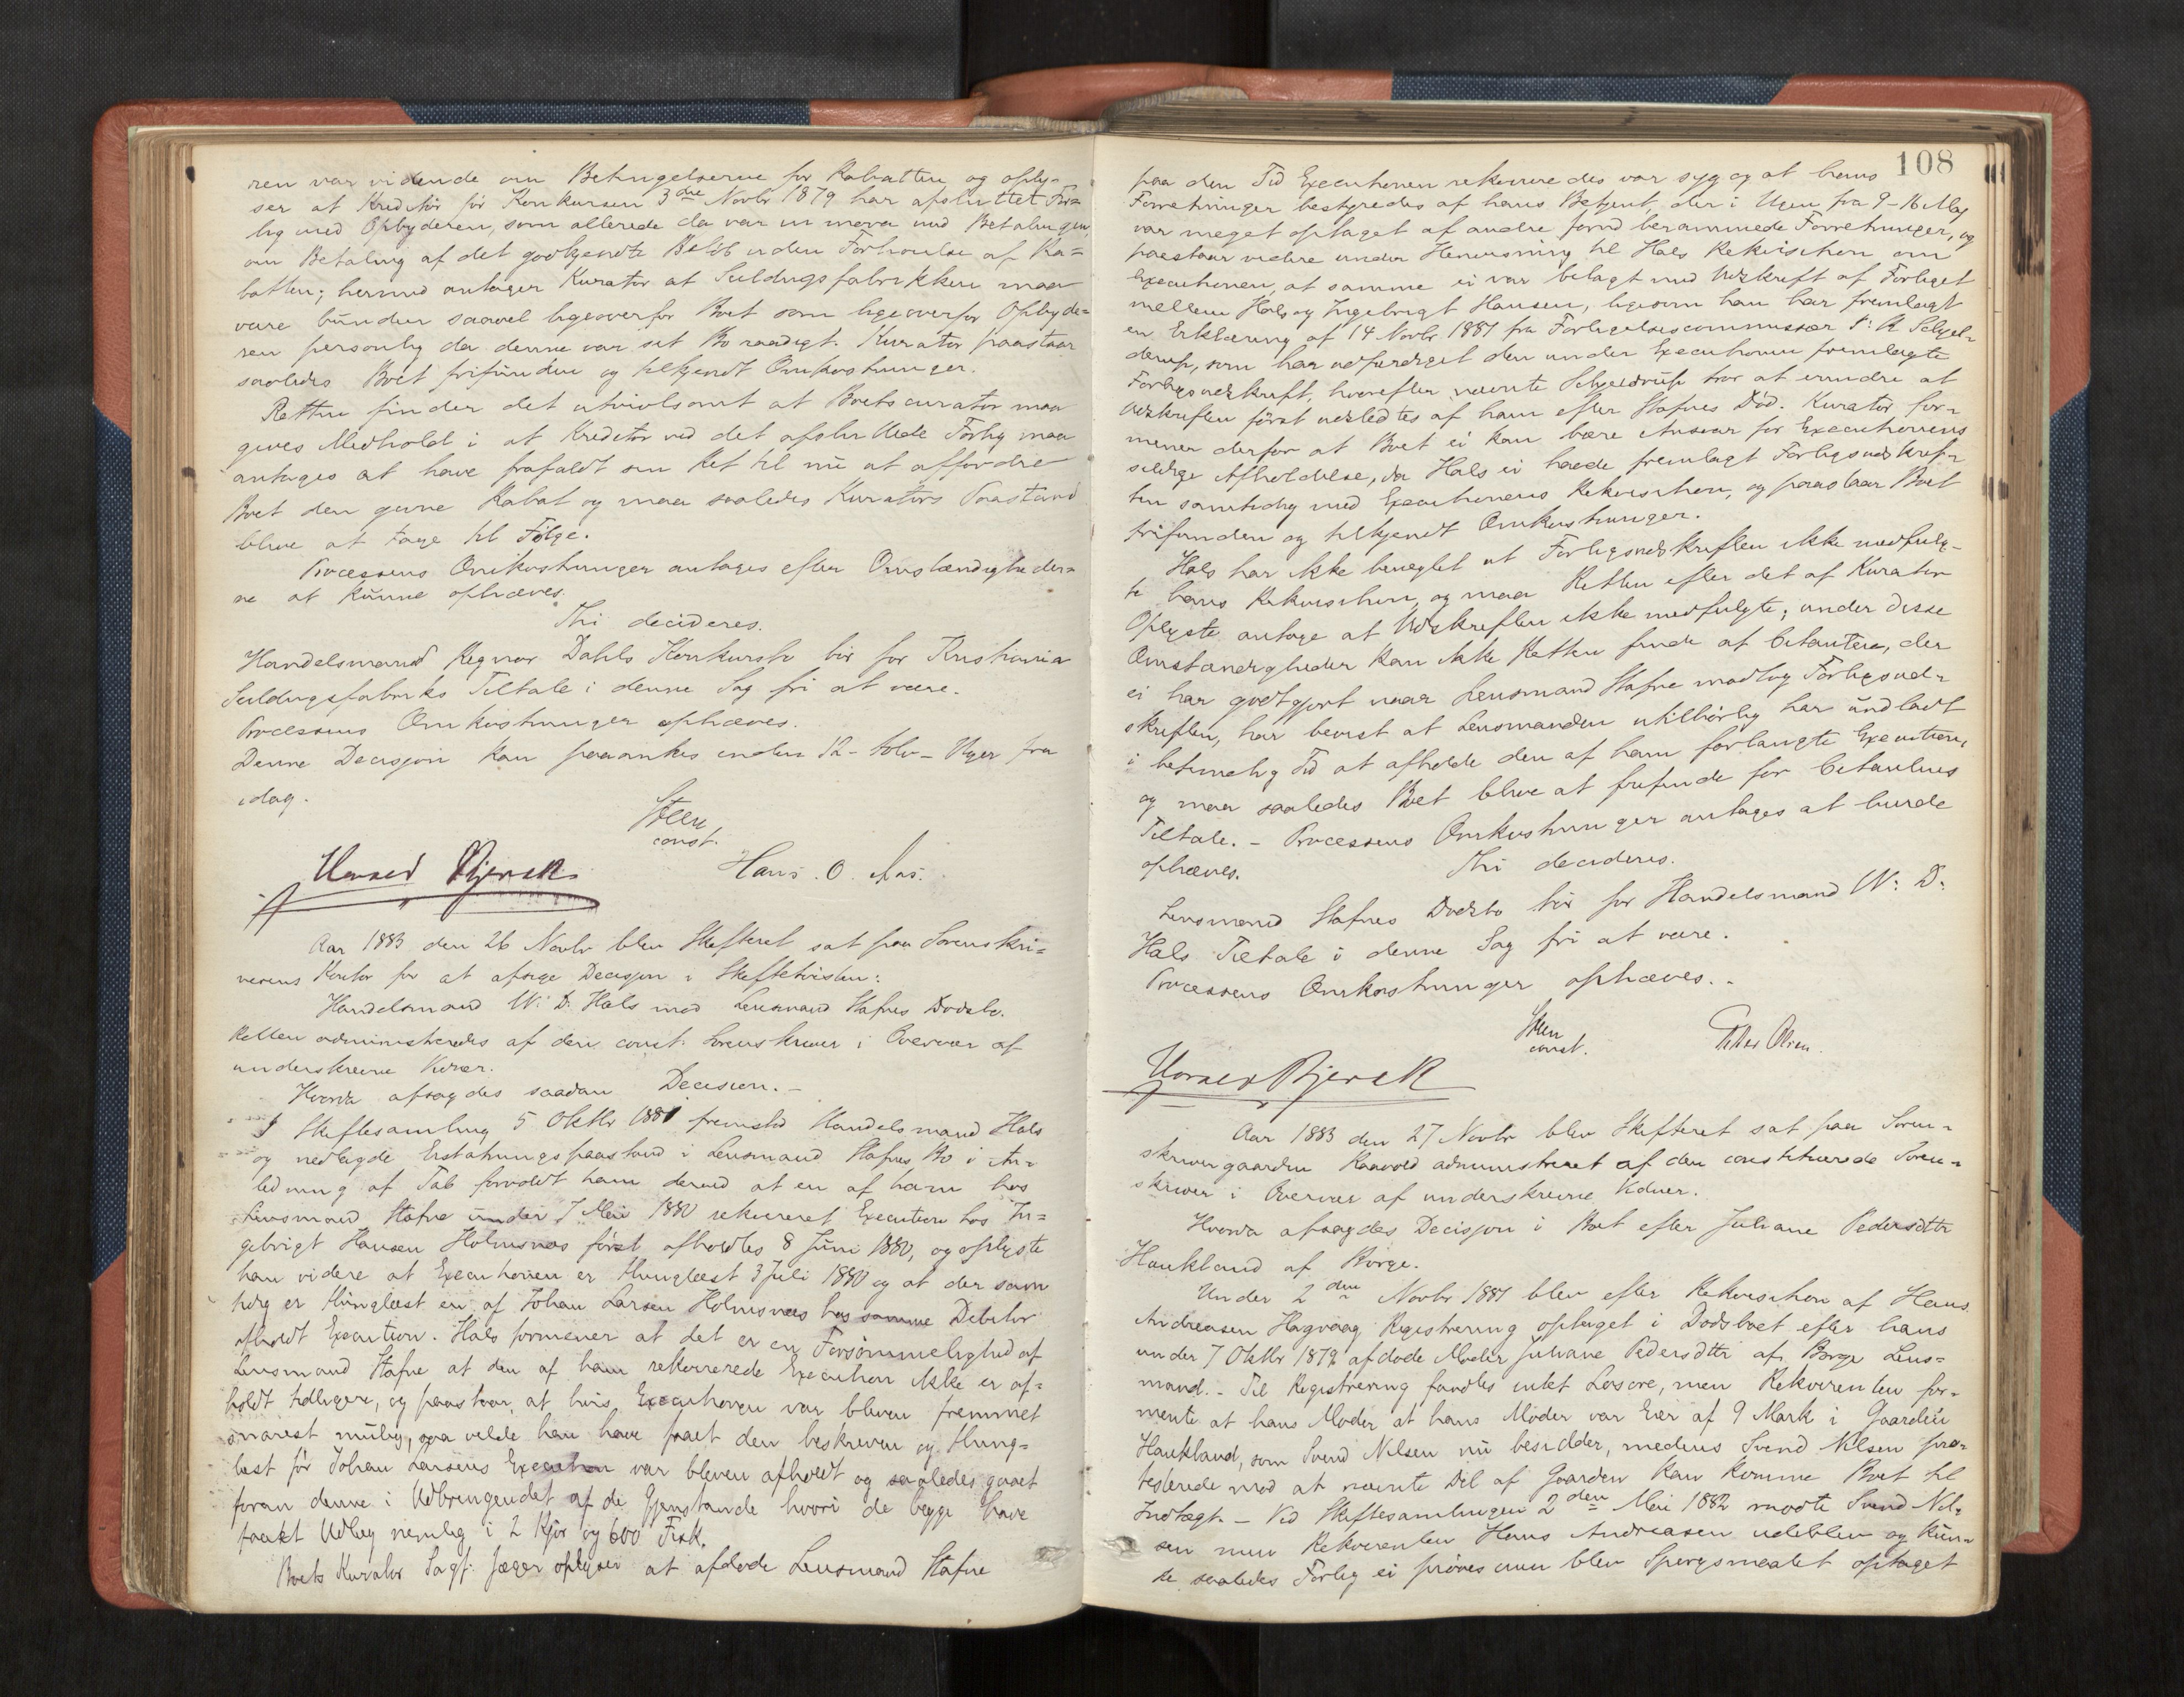 ren var vidende om Betingelserne for Rabatten og oply-
ser at Kreditor för Konkursen 3die Novbr 1879 har afsluttet For=
lig med Opbyderen, som allerede da var in mora med Betalingen,
om Betaling af det godkjendte Belöb uden Forhoielse af Ra=
batten; hermed antager Kurator at Sildugsfabrikken maa
være bunden saavel ligeoverfor Boet som ligeoverfor Opbyde=
ren personlig da denne var sit Bo raadigt. Kurator paastaar
saaledes Boet frifunden og tilkjendt Omkostninger.
Retten finder det utvivlsomt at Boets curator maa
gives Medhold i at Kreditor ved det afsluttede Forlig maa
antages at have frafaldt sin Ret til nu at affordre
Boet den givne Rabat og maa saaledes Kurators Paastand
blive at tage til Fölge.
Processens Omkostninger antages efter Omstændigheder=
ne at kunne ophæves.
Thi decideres.
Handelsmand Regnor Dahls Konkursbo bör for Kristiania
Seildugsfabriks Tiltale i denne Sag fri at være.
Processens Omkostninger ophæves.
Denne Decisjon kan paaankes inden 12 - tolv - Uger fra
idag.
Steen
const.
Hans. O. Aas.
Aar 1883 den 26 Novbr blev Skifteret sat paa Sorenskri=
verens Kontor for at afsige Decisjon i Skiftetvisten:
Handelsmand W. D. Hals mod Lensmand Stafnes Dödsbo.
Retten administreredes af den const. Sorenskriver i Overvær af
underskrevne Vidner.
Hvorda afsagdes saadan Decision. -
I Skiftesamling 5 Oktbr 1881 fremstod Handelsmand Hals
og nedlagde Erstatningspaastand i Lensmand Stafnes Bo i An=
ledning af Tab forvoldt ham derved at en af ham hos
Lensmand Stafne under 7 Mai 1880 rekvireret Execution hos In=
gebrigt Hansen Holmsnæs först afholdtes 8 Juni 1880, og oplyste
han videre at Executionen er thinglæst 3 Juli 1880 og at der sam
tidig er thinglæst en af Johan Larsen Holmsnæs hos samme Debitor
afholdt Execution. Hals formener at det er en Forsömmelighed af
Lensmand Stafne at den af ham rekvirerede Execution ikke er af=
holdt tidligere, og paastaar, at hvis Executionen var bleven fremmet
snarest mulig, saa vilde han have faaet den beskreven og thing=
læst för Johan Larsens Execution var bleven afholdt og saaledes gaaet
foran denne i Udbringendet af de Gjenstande hvori de begge have
taget Udlæg nemlig i 2 Kjör og 600 Fisk.
Boets Kurator Sagf. Jæger oplyser at afdöde Lensmand Stafne
108
paa den Tid Executionen rekvireredes var syg og at hans
Forretninger bestyredes af hans Betjent, der i Ugen fra 9-16 Mai
var meget optaget af andre forud berammede Forretninger, og
paastaar videre under Henvisning til Hals Rekvisition om
Executionen, at samme ei var bilagt med Udskrift af Forliget
mellem Hals og Ingebrigt Hansen, ligesom han har fremlagt
en Erklæring af 14 Novbr 1881 fra Forligelsescommissær Schjel=
derup, som har udfærdiget den under Executionen fremlagte
Forligsudskrift, hvorefter nævnte Schjelderup tror at erindre at
Udskriften först udstedtes af ham efter Stafnes Död. Kurator for=
mener derfor at Boet ei kan bære Ansvar for Executionens
sildige Afholdelse, da Hals ei havde fremlagt Forligsudskrif=
ten samtidig med Executionens Rekvisition, og paastaar Boet
frifunden og tilkjendt Omkostninger.
Hals har ikke benegtet at Forligsudskriften ikke medfulg-
te hans Rekvisition, og maa Retten efter det af Kurator
Oplyste antage at Udskriften ikke medfulgte; under disse
Omstændigheder kan ikke Retten finde at Citanten, der
ei har godtgjort naar Lensmand Stafne modtog Forligsud=
skriften, har bevist at Lensmanden utilbörlig har undladt
i betimelig Tid at afholde den af ham forlangte Execution,
og maa saaledes Boet blive at frifinde for Citantens
Tiltale. - Processens Omkostninger antages at burde
ophæves.
Thi decideres.
Lensmand Stafnes Dödsbo bör for Handelsmand W. D.
Hals Tiltale i denne Sag fri at være.
Processens Omkostninger ophæves.
Steen
const.
Petter Olsen.
Aar 1883 den 27 Novbr blev Skifteret sat paa Soren=
skrivergaarden administreret af den constituerede Soren=
skriver i Overvær af underskrevne Vidner.
Hvorda afsagdes Decisjon i Boet efter Juliane Pedersdttr
Haukland af Borge.
Under 2den Novbr 1881 blev efter Rekvisition af Hans
Andreasen Hagvaag Registrering optaget i Dödsboet efter hans
under 7 Oktbr 1872 afdöde Moder Juliane Pedersdttr af Borge Lens=
mand. - Til Registrering fandtes intet Lösöre, men Rekvirenten for=
mente at hans Moder at hans Moder var Eier af 9 Mark i Gaarden
Haukland, som Svend Nilsen nu besidder, medens Svend Nilsen pro=
testerede mod at nævnte Del af Gaarden kan komme Boet til
Indtægt. - Ved Skiftesamlingen 2den Mai 1882 mödte Svend Nil=
sen men Rekvirenten Hans Andreasen udeblev og kun=
de saaledes Forlig ei pröves men blev Spörgsmaalet optaget